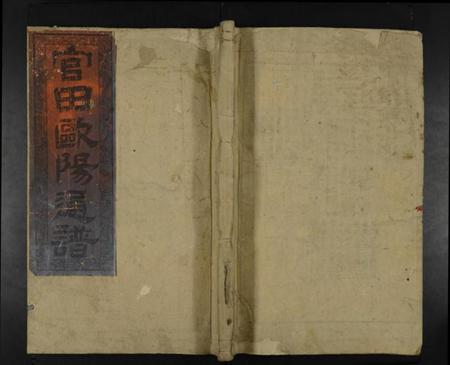 官田歐陽通譜